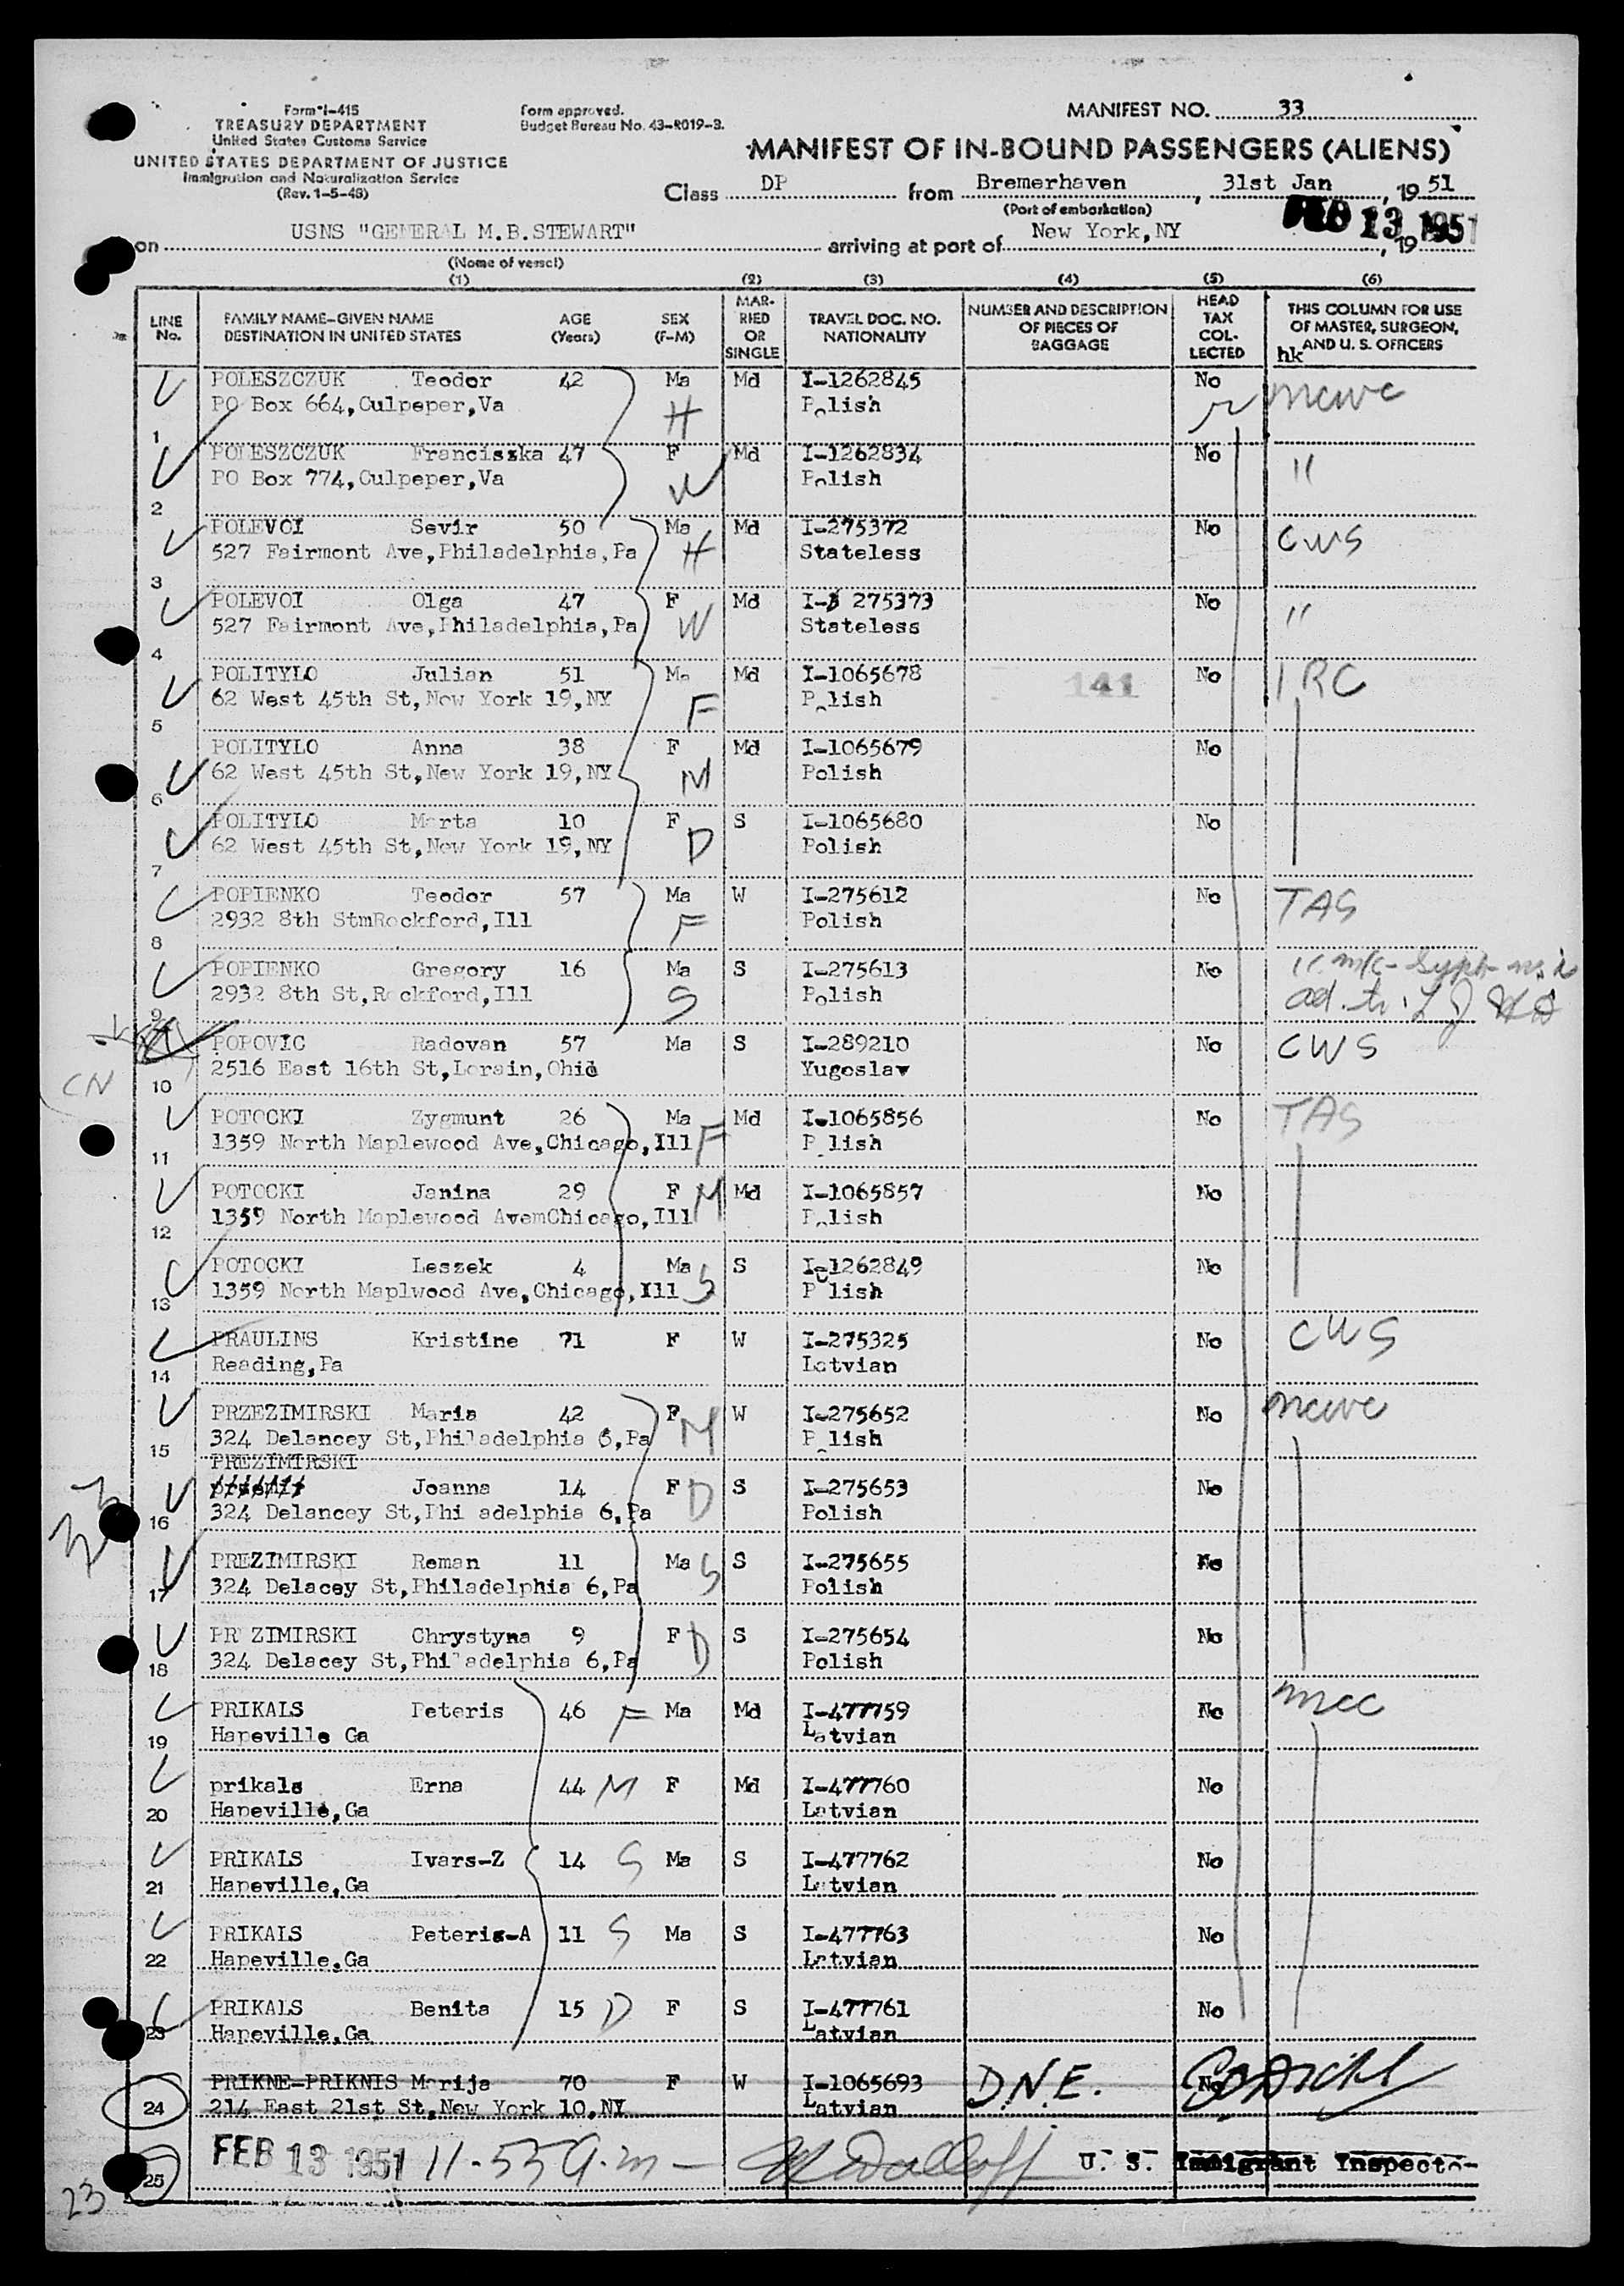 Form I-415
TREASURY DEPARTMENT
United States Customs Service
UNITED STATES DEPARTMENT OF JUSTICE
Immigration and Naturalization Service
(Rev. 1-5-48)
Form approved.
Budget Bureau No. 43-R019-3.
MANIFEST NO. 33
MANIFEST OF IN-BOUND PASSENGERS (ALIENS)
Class DP from Bremerhaven, 31st Jan, 19 51
(Port of embarkation)
on USNS "GENERAL M.B.STEWART" arriving at port of New York,NY FEB 13 1951, 19
(Name of vessel)
(1) (2) (3) (4) (5) (6)
LINE No. FAMILY NAME-GIVEN NAME DESTINATION IN UNITED STATES AGE (Years) SEX (F-M) MARRIED OR SINGLE TRAVEL DOC. NO. NATIONALITY NUMBER AND DESCRIPTION OF PIECES OF BAGGAGE HEAD TAX COLLECTED THIS COLUMN FOR USE OF MASTER, SURGEON, AND U. S. OFFICERS
hk
POLESZCZUK Teodor 42 Ma Md I-1262845 No ncwc
PO Box 664,Culpeper,Va H Polish
1
POLESZCZUK Franciszka 47 F Md I-1262834 No "
PO Box 774,Culpeper,Va W Polish
2
POLEVOI Sevir 50 Ma Md I-275372 No CWS
527 Fairmont Ave,Philadelphia,Pa H Stateless
3
POLEVOI Olga 47 F Md I-3 275373 No "
527 Fairmont Ave,Philadelphia,Pa W Stateless
4
POLITYLO Julian 51 Ma Md I-1065678 141 No IRC
62 West 45th St,New York 19,NY F Polish
5
POLITYLO Anna 38 F Md I-1065679 No
62 West 45th St,New York 19,NY M Polish
6
POLITYLO Marta 10 F S I-1065680 No
62 West 45th St,New York 19,NY D Polish
7
POPIENKO Teodor 57 Ma W I-275612 No TAS
2932 8th StmRockford,Ill F Polish
8
POPIENKO Gregory 16 Ma S I-275613 No " m/c-
2932 8th St,Rockford,Ill S Polish
9
POPOVIC Radovan 57 Ma S I-289210 No CWS
2516 East 16th St,Lorain,Ohio Yugoslav
CN 10
POTOCKI Zygmunt 26 Ma Md I-1065856 No TAS
1359 North Maplewood Ave,Chicago,Ill F Polish
11
POTOCKI Janina 29 F M Md I-1065857 No
1359 North Maplewood AvemChicago,Ill Polish
12
POTOCKI Leszek 4 Ma S I-1262849 No
1359 North Maplwood Ave,Chicago,Ill S Polish
13
PRAULINS Kristine 71 F W I-275325 No CWS
Reading,Pa Latvian
14
PRZEZIMIRSKI Maria 42 F W I-275652 No ncwc
324 Delancey St,Philadelphia 6,Pa M Polish
15
PREZIMIRSKI
Joanna 14 F D S I-275653 No
324 Delancey St,Phi adelphia 6,Pa Polish
16
PREZIMIRSKI Roman 11 Ma S S I-275655 No
324 Delacey St,Philadelphia 6,Pa Polish
17
PR ZIMIRSKI Chrystyna 9 F D S I-275654 No
324 Delacey St,Philadelphia 6,Pa Polish
18
PRIKALS Peteris 46 F Ma Md I-477759 No
Hapeville Ga Latvian
19
prikals Erna 44 M F Md I-477760 No
Hapeville,Ga Latvian
20
PRIKALS Ivars-Z 14 S Ma S I-477762 No
Hapeville,Ga Latvian
21
PRIKALS Peteris-A 11 S Ma S I-477763 No
Hapeville,Ga Latvian
22
PRIKALS Benita 15 D F S I-477761 No
Hapeville,Ga Latvian
23
PRIKNE-PRIKNIS Marija 70 F W I-1065693 D.N.E. No
214 East 21st St,New York 10,NY Latvian
24
FEB 13 1951 11-55 a.m- U. S. Immigrant Inspector
25
23